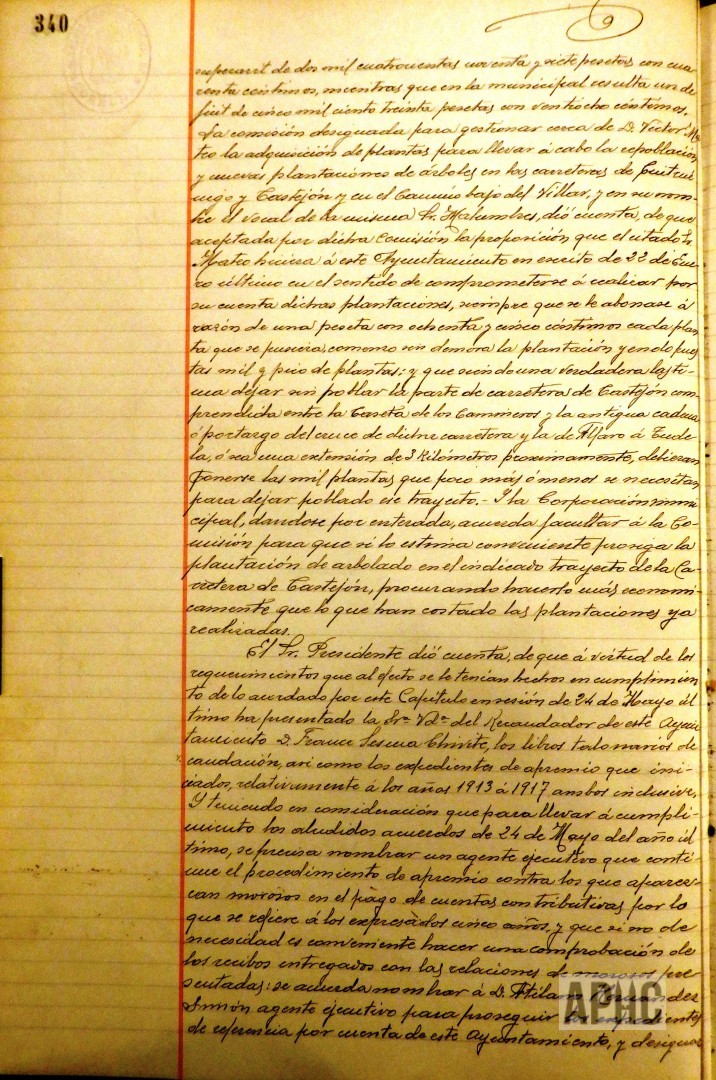 340
superavit de dos mil cuatrocientas noventa y siete pesetas con cua
renta céntimos, mientras que en la municipal resulta un de
ficit de cinco mil ciento treinta pesetas con ventiocho céntimos.
La comisión designada para gestionar cerca de D. Victor Ma
teo la adquisición de plantas para llevar á cabo la repoblación
y nuevas plantaciones de árboles en las carreteras de Cintrué
nigo y Castejón y en el Camino bajo del Villar, y en su nom-
bre el vocal de la misma Sr. Malumbres, dió cuenta, de que
aceptada por dicha Comisión la proposición que el citado Sr.
Mateo hiciera á este Ayuntamiento en escrito de 22 de Ene
ro último en el sentido de comprometerse á realizar por
su cuenta dichas plantaciones, siempre que se le abonase á
razón de una peseta con ochenta y cinco céntimos cada plan
ta que se pusiera, comenzo sin demora la plantación yendo pues
tas mil y pico de plantas: y que siendo una verdadera lasti-
ma dejar sin poblar la parte de carretera de Castejón com
prendida entre la Caseta de los Camineros y la antigua cadena
ó portazgo del cruce de dicha carretera y la de Alfaro á Tude
la, ó sea una extensión de 3 Kilómetros proximamente, debieran
ponerse las mil plantas que poco más ó menos se necesitan
para dejar poblado ese trayecto.- Y la Corporación muni
cipal, dandose por enterada, acuerda facultar á la Co-
misión para que si lo estima conveniente prosiga la
plantación de arbolado en el indicado trayecto de la Ca-
rretera de Castejón, procurando hacerlo más economi-
camente que lo que han costado las plantaciones ya
realizadas.
El Sr. Presidente dió cuenta, de que á virtud de los
requerimientos que al efecto se le tenian hechos en cumplimien
to de lo acordado por este Capítulo en sesión de 24 de Mayo úl
timo ha presentado la Sra. Vda. del Recaudador de este Ayun
tamiento D. Franco Sesma Chivite, los libros talonarios de
caudación, asi como los expedientes de apremio que ini-
ciados, relativamente á los años 1913 á 1917 ambos inclusive.
Y teniendo en consideración que para llevar á cumpli-
miento los aludidos acuerdos de 24 de Mayo del año úl
timo, se precisa nombrar un agente ejecutivo que conti
nue el procedimiento de apremio contra los que aparez-
can morosos en el pago de cuentas contributivas por lo
que se refiere á los expresados cinco años, y que si no de
necesidad es conveniente hacer una comprobación de
los recibos entregados con las relaciones de morosos pre
sentadas: se acuerda nombrar á D. Atilano Hernandez
Simón agente ejecutivo para proseguir los expedientes
de referencia por cuenta de este Ayuntamiento, y designar
APHC